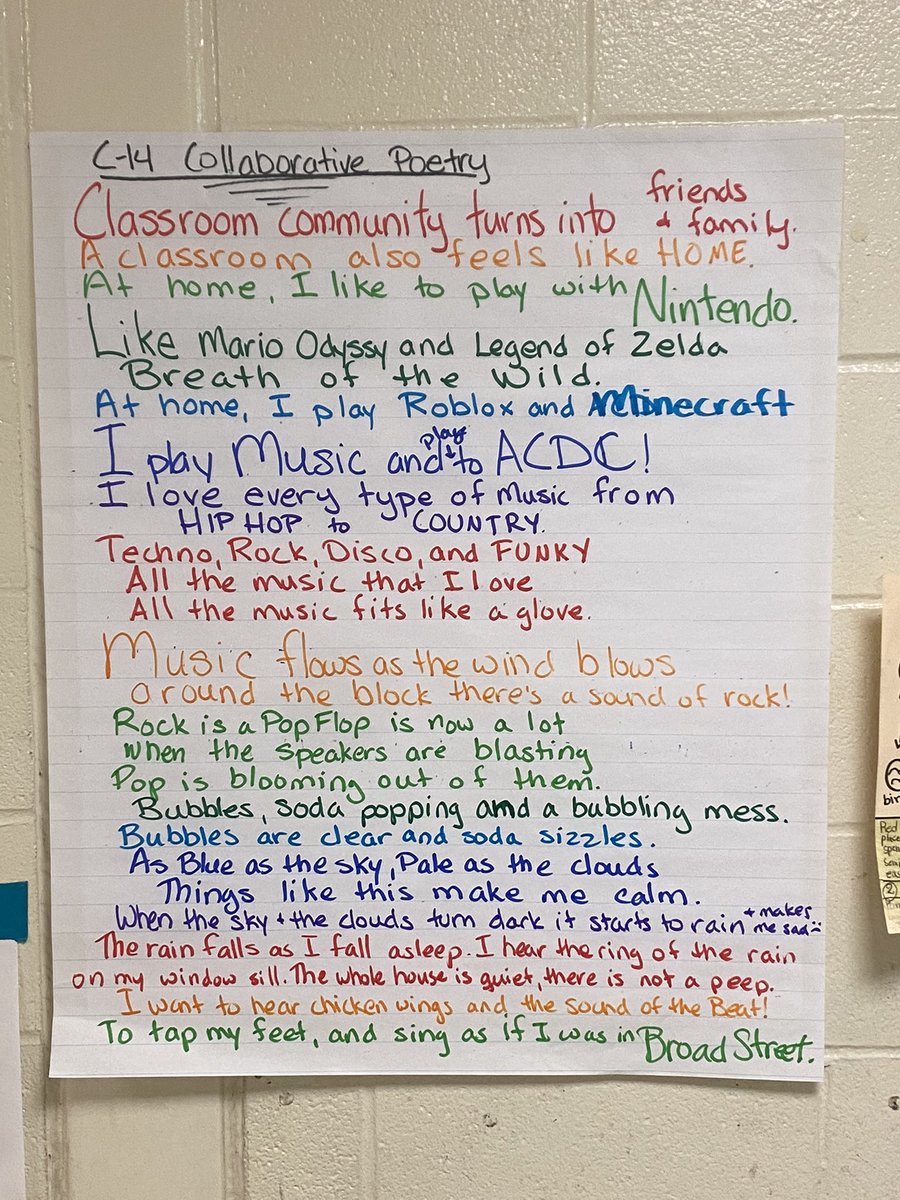 C-14 Collaborative Poetry
Classroom community turns into friends & family.
A classroom also feels like HOME.
At home, I like to play with Nintendo.
Like Mario Odyssey and Legend of Zelda
Breath of the Wild.
At home, I play Roblox and Minecraft
I play Music and play to ACDC!
I love every type of Music from
HIP HOP to COUNTRY.
Techno, Rock, Disco, and FUNKY
All the music that I love
All the music fits like a glove.
Music flows as the wind blows
around the block there's a sound of rock!
Rock is a Pop Flop is now a lot
when the speakers are blasting
Pop is blooming out of them.
Bubbles, soda popping and a bubbling mess.
Bubbles are clear and soda sizzles.
As Blue as the sky, Pale as the clouds
Things like this make me calm.
When the sky + the clouds turn dark it starts to rain + makes me sad
The rain falls as I fall asleep. I hear the ring of the rain
on my window sill. The whole house is quiet, there is not a peep.
I want to hear chicken wings and the sound of the Beat!
To tap my feet, and sing as if I was in Broad Street.
Red